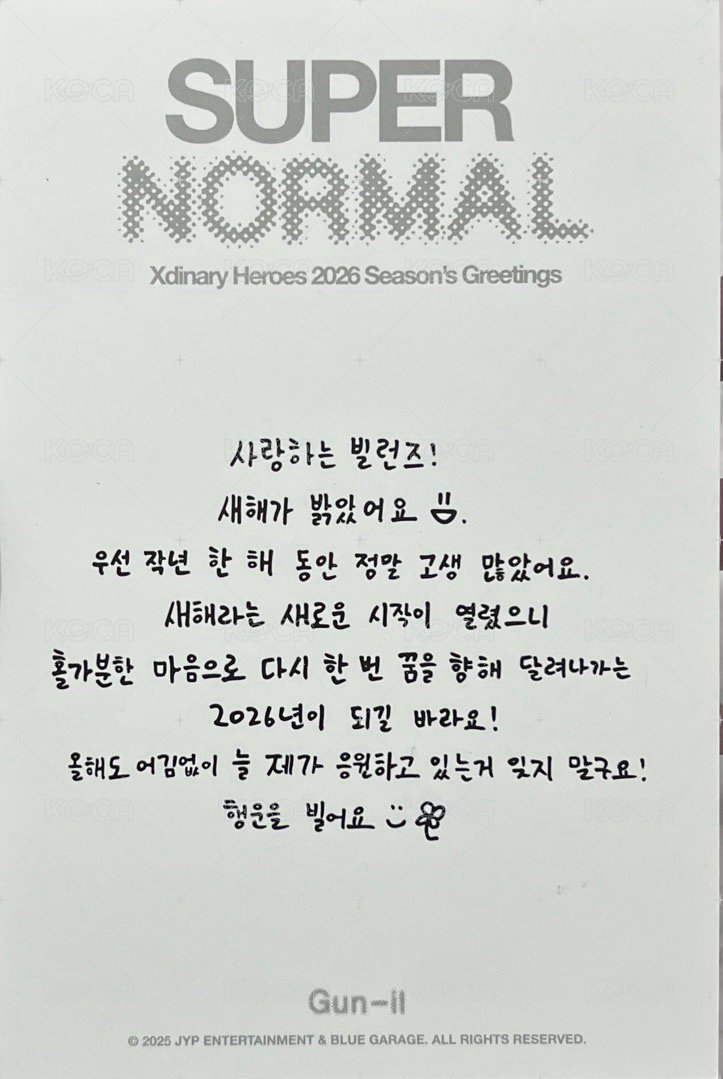 SUPER
NORMAL
Xdinary Heroes 2026 Season's Greetings
사랑하는 빌런즈!
새해가 밝았어요 .
우선 작년 한 해 동안 정말 고생 많았어요.
새해라는 새로운 시작이 열렸으니
홀가분한 마음으로 다시 한 번 꿈을 향해 달려나가는
2026년이 되길 바라요!
올해도 어김없이 늘 제가 응원하고 있는거 잊지 말구요!
행운을 빌어요
Gun-il
© 2025 JYP ENTERTAINMENT & BLUE GARAGE. ALL RIGHTS RESERVED.